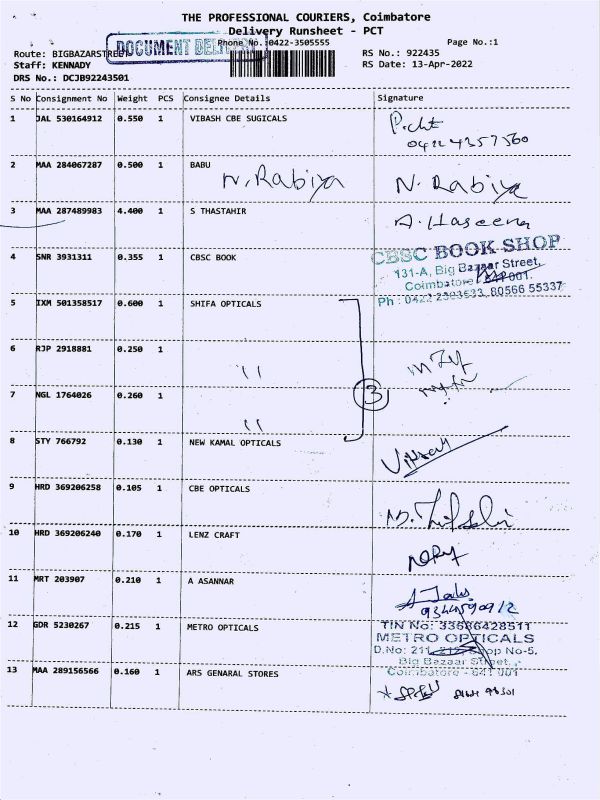 THE PROFESSIONAL COURIERS, Coimbatore
Delivery Runsheet - PCT
DOCUMENT
Phone No.:0422-3505555
Page No.:1
Route: BIGBAZARSTREET
RS No.: 922435
Staff: KENNADY
RS Date: 13-Apr-2022
DRS No.: DCJB92243501
S No Consignment No Weight PCS Consignee Details Signature
1 JAL 530164912 0.550 1 VIBASH CBE SUGICALS
04224357560
2 MAA 284067287 0.500 1 BABU
N. Rabiya N. Rabiya
3 MAA 287489983 4.400 1 S THASTAHIR A. Haseena
4 SNR 3931311 0.355 1 CBSC BOOK
CBSC BOOK SHOP
131-A, Big Bazaar Street,
Coimbatore 641 001.
Ph : 0422 80566 55337
5 IXM 501358517 0.600 1 SHIFA OPTICALS
6 RJP 2918881 0.250 1
"
3
7 NGL 1764026 0.260 1
"
8 STY 766792 0.130 1 NEW KAMAL OPTICALS
9 HRD 369206258 0.105 1 CBE OPTICALS
10 HRD 369206240 0.170 1 LENZ CRAFT
11 MRT 203907 0.210 1 A ASANNAR
12 GDR 5230267 0.215 1 METRO OPTICALS
TIN No: 33586428511
METRO OPTICALS
D.No: 211, 212, Shop No-5,
Big Bazaar Street,
Coimbatore - 641 001
13 MAA 289156566 0.160 1 ARS GENARAL STORES